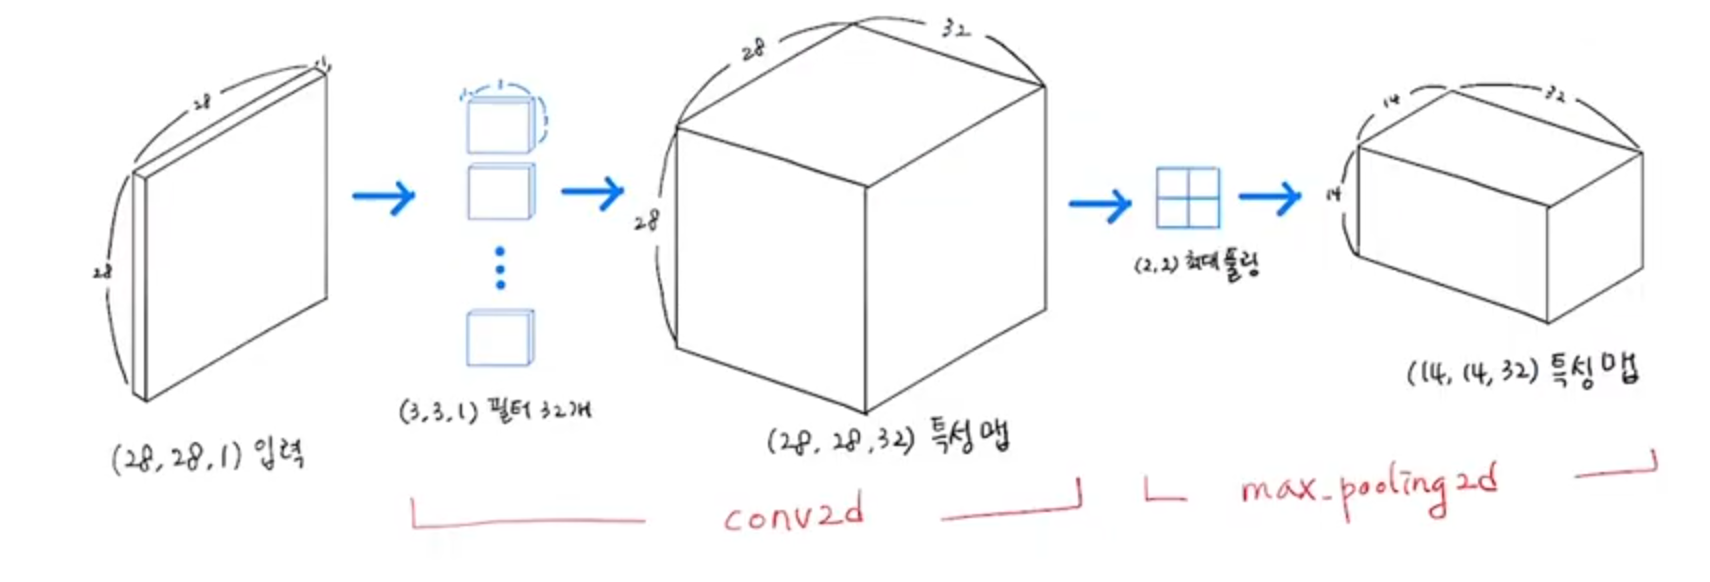 28
1
28
(28, 28, 1) 입력
3
(3, 3, 1) 필터 32개
28
32
28
(28, 28, 32) 특성 맵
conv2d
(2, 2) 최대 풀링
14
32
14
(14, 14, 32) 특성 맵
max_pooling2d